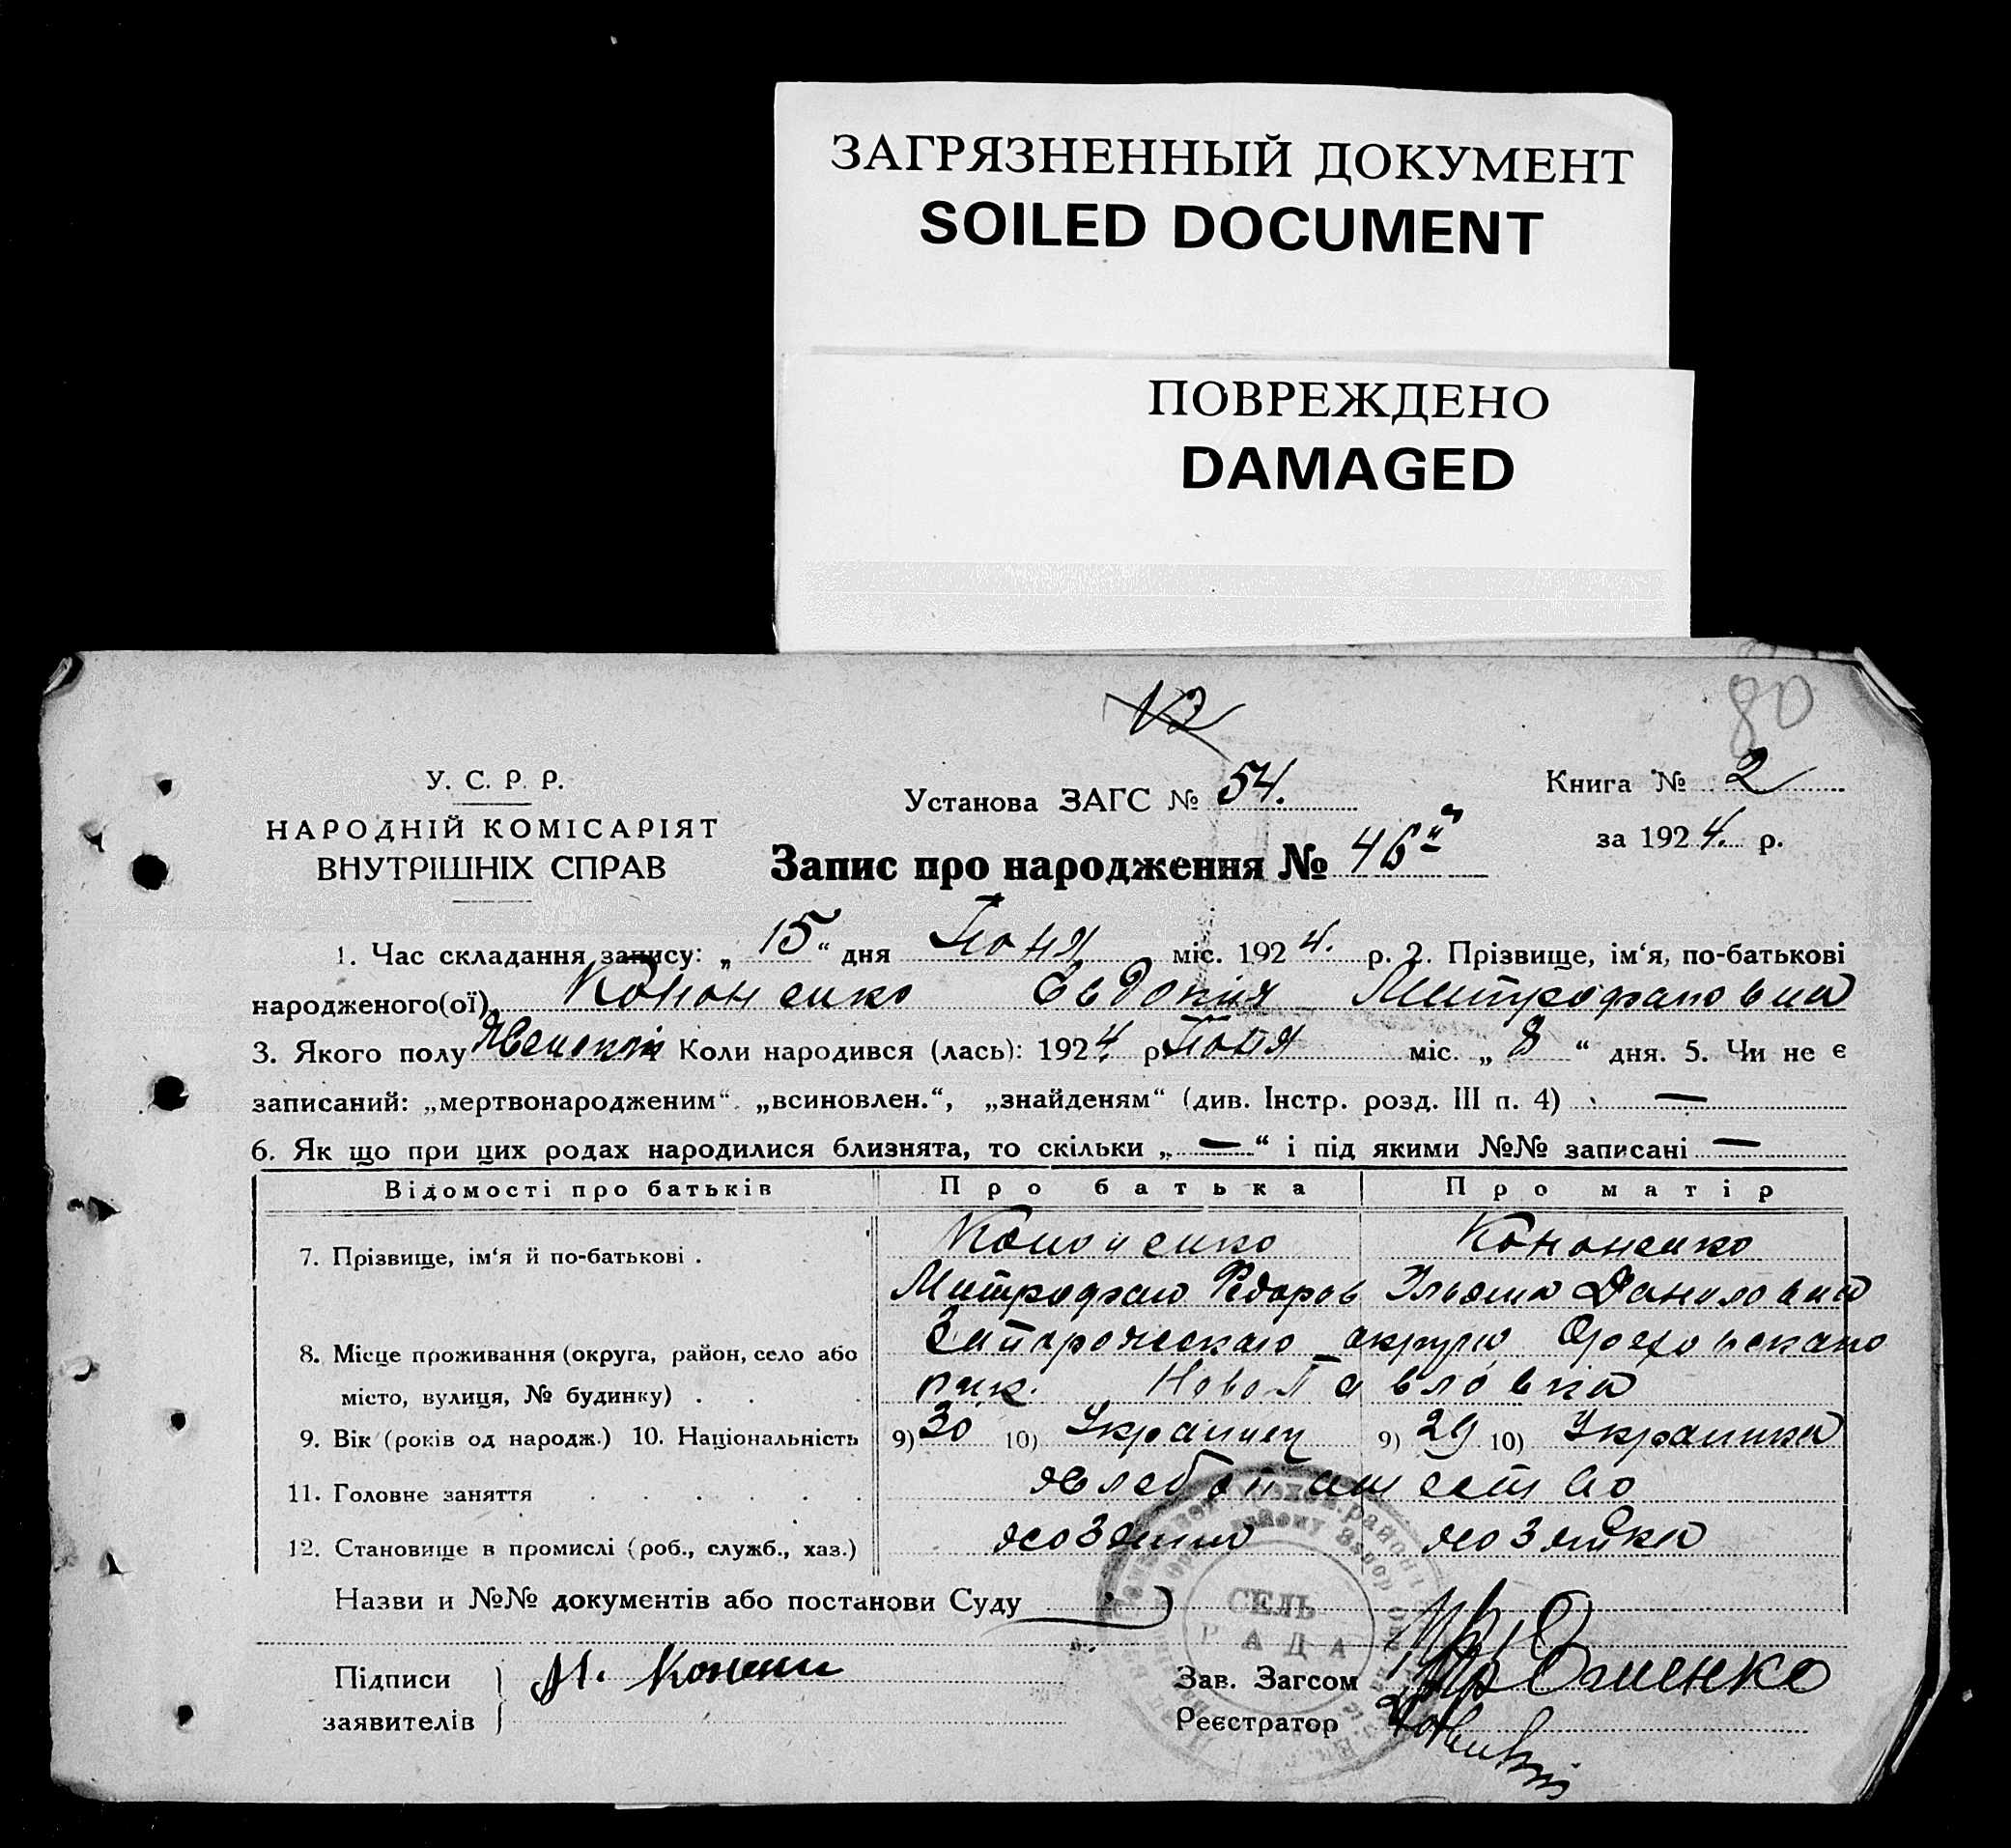 ЗАГРЯЗНЕННЫЙ ДОКУМЕНТ
SOILED DOCUMENT
ПОВРЕЖДЕНО
DAMAGED
80
У. С. Р. Р.
НАРОДНІЙ КОМІСАРІЯТ
ВНУТРІШНІХ СПРАВ
Установа ЗАГС № 54.
Запис про народження № 46
Книга № 2
за 1924. р.
1. Час складання запису: „ 15 “ дня Июня міс. 1924. р. 2. Прізвище, ім‘я, по-батькові
народженого(ої) Кононенко Евдокия Митрофановна
3. Якого полу Женской Коли народився (лась): 1924 р. Июня міс. „ 8 “ дня. 5. Чи не є
записаний: „мертвонародженим“, „всиновлен.“, „знайденям“ (див. Інстр. розд. III п. 4) —
6. Як що при цих родах народилися близнята, то скільки „ — “ і під якими №№ записані —
Відомості про батьків Про батька Про матір
7. Прізвище, ім‘я й по-батькові . Кононенко Кононенко
Митрофан Федоров Даниловна
8. Місце проживання (округа, район, село або Запорожскаго округа Ореховскаго
місто, вулиця, № будинку) . . . Новопавловка
9. Вік (років од народж.) 10. Національність 9) 30 10) Украинец 9) 29 10) Украинка
11. Головне заняття . . . . . . хлебопашество
12. Становище в промислі (роб., служб., хаз.) хозяин хозяйка
Назви и №№ документів або постанови Суду
СЕЛЬ
РАДА
Підписи
заявителів
М. Конон
Зав. Загсом
Реєстратор